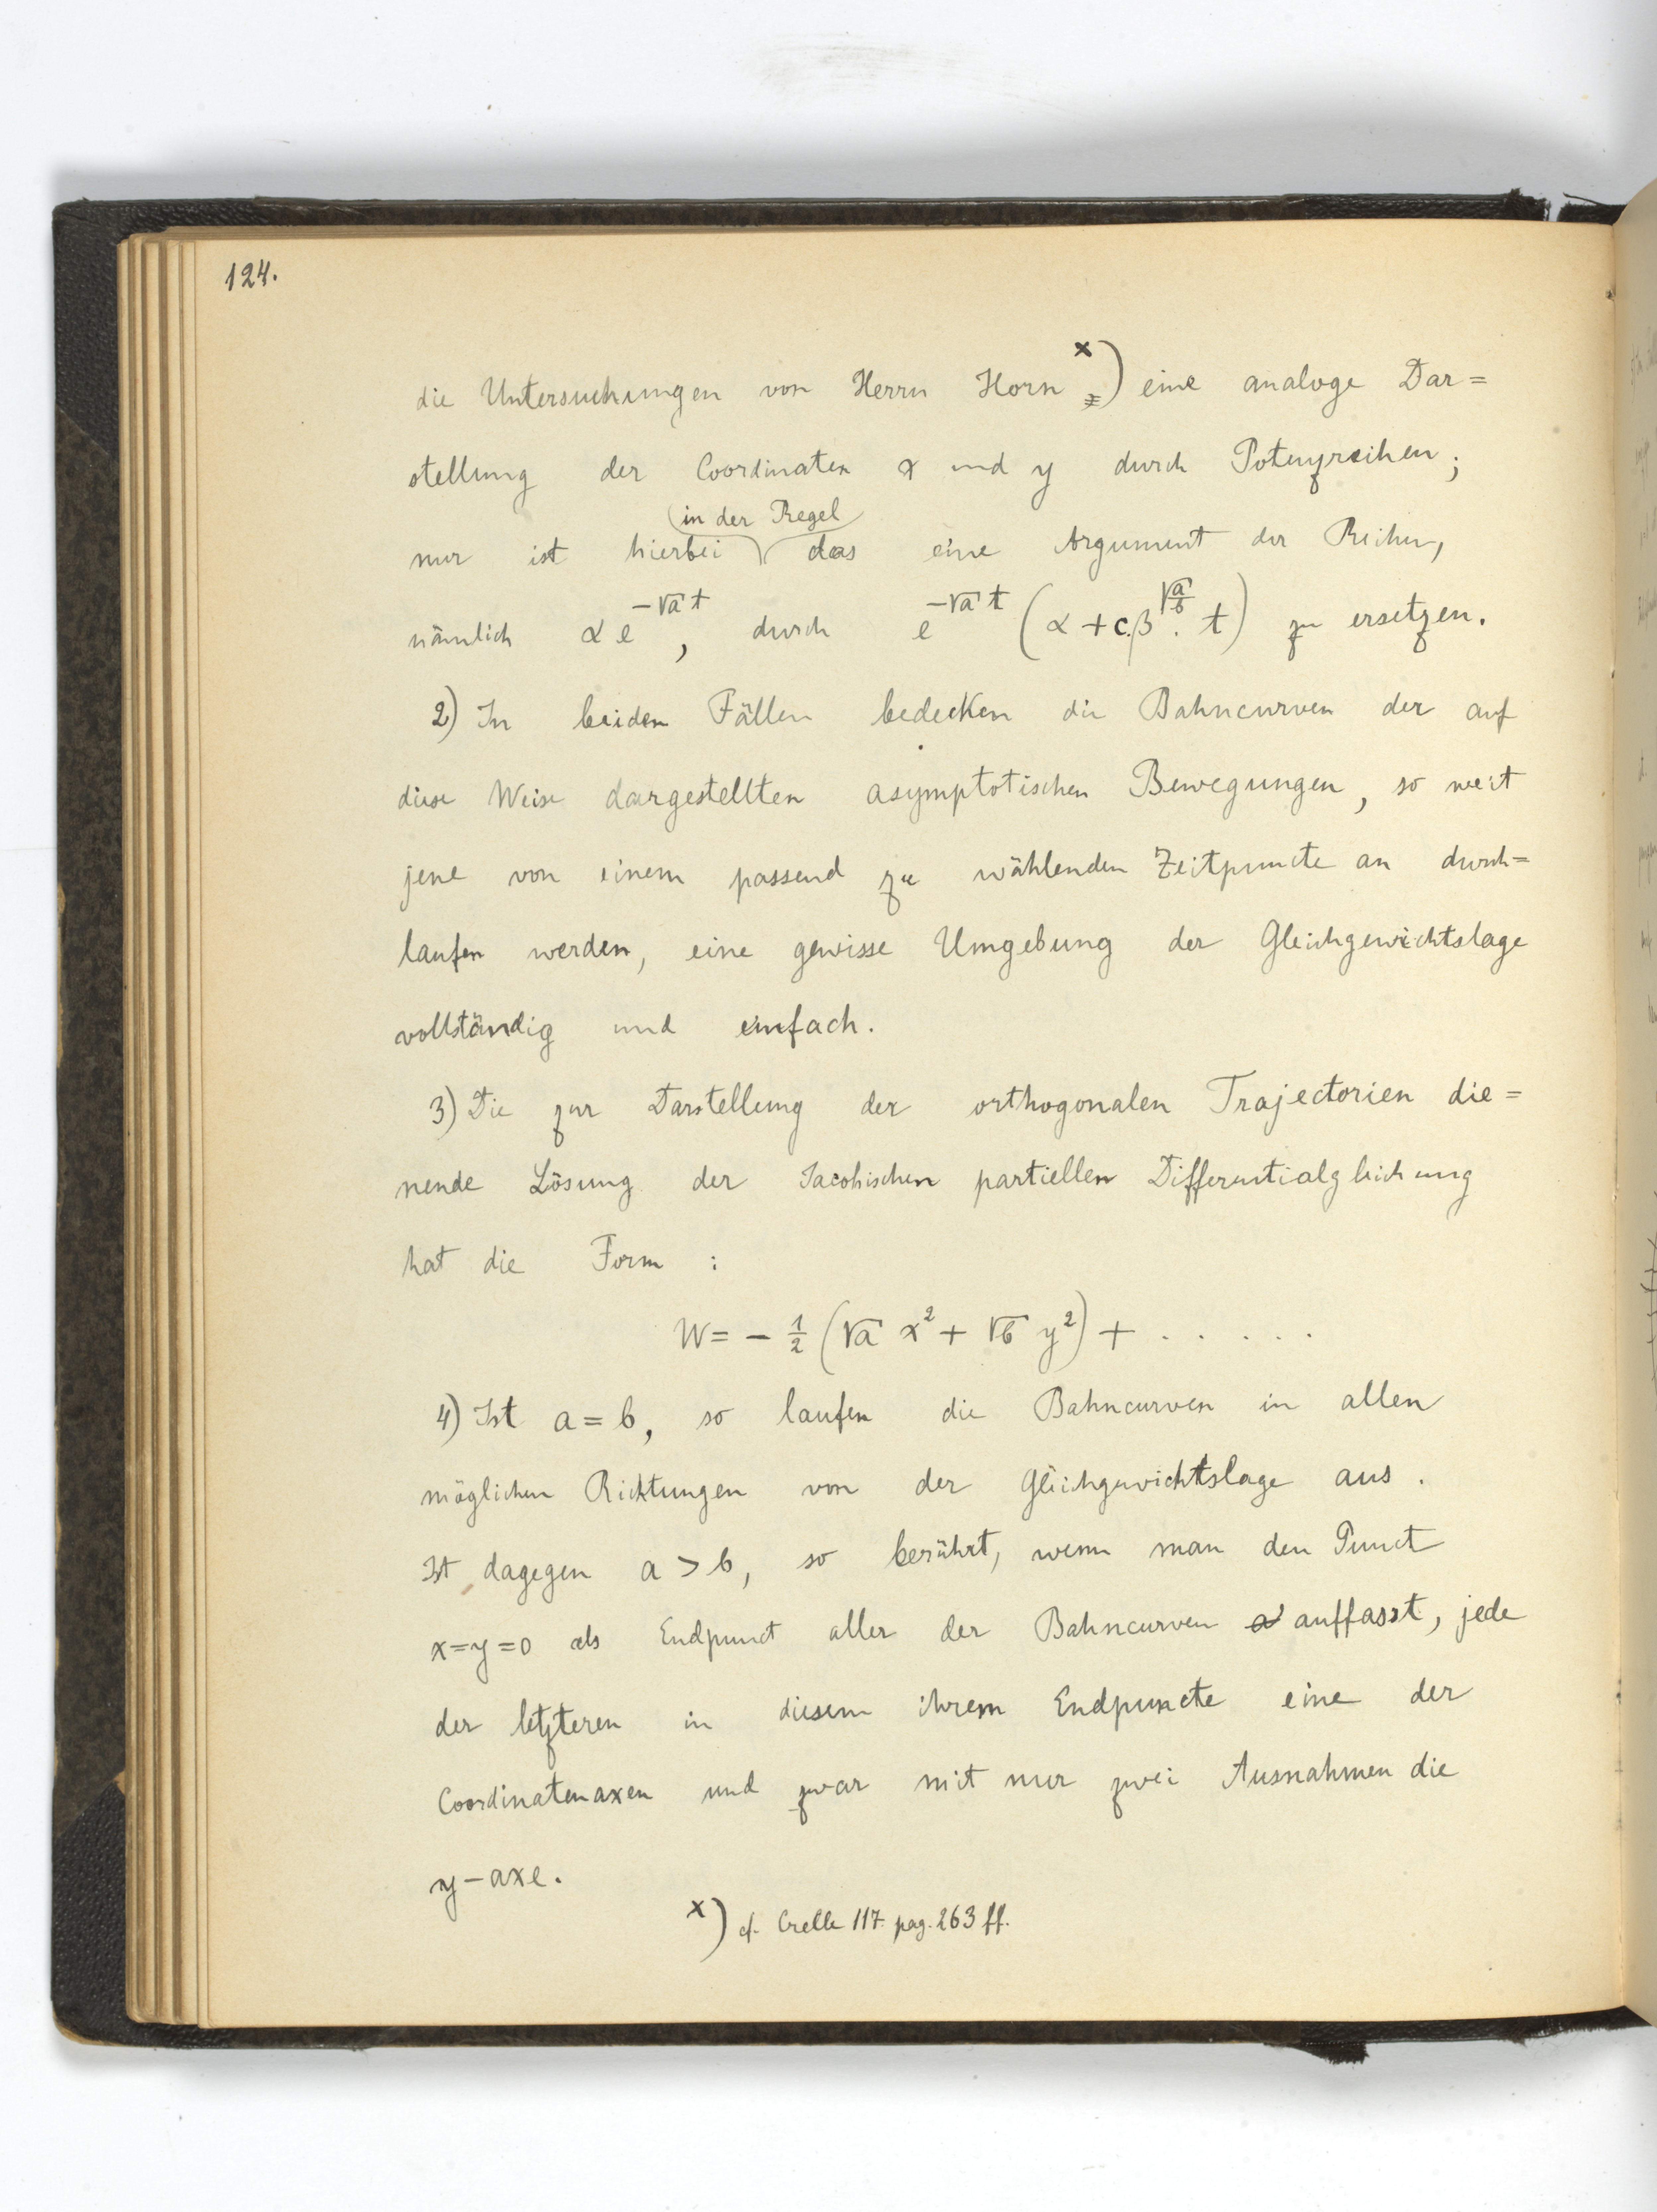 124.
die Untersuchungen von Herrn Horn x) eine analoge Dar=
stellung der Coordinaten x und y durch Potenzreihen;
in der Regel
nur ist hierbei das eine Argument der Reihen,
nämlich αe^{-√a t}, durch e^{-√a t} (α + c.β^{√(a/b)} . t) zu ersetzen.
2) In beiden Fällen bedecken die Bahncurven der auf
diese Weise dargestellten asymptotischen Bewegungen, so weit
jene von einem passend zu wählenden Zeitpuncte an durch=
laufen werden, eine gewisse Umgebung der Gleichgewichtslage
vollständig und einfach.
3) Die zur Darstellung der orthogonalen Trajectorien die=
nende Lösung der Jacobischen partiellen Differentialgleichung
hat die Form :
W = - 1/2 (√a x² + √b y²) + . . . . .
4) Ist a = b, so laufen die Bahncurven in allen
möglichen Richtungen von der Gleichgewichtslage aus.
Ist dagegen a > b, so berührt, wenn man den Punct
x=y=0 als Endpunct aller der Bahncurven auffasst, jede
der letzteren in diesem ihrem Endpuncte eine der
Coordinatenaxen und zwar mit nur zwei Ausnahmen die
y-axe.
x) cf. Crelle 117 pag. 263 ff.